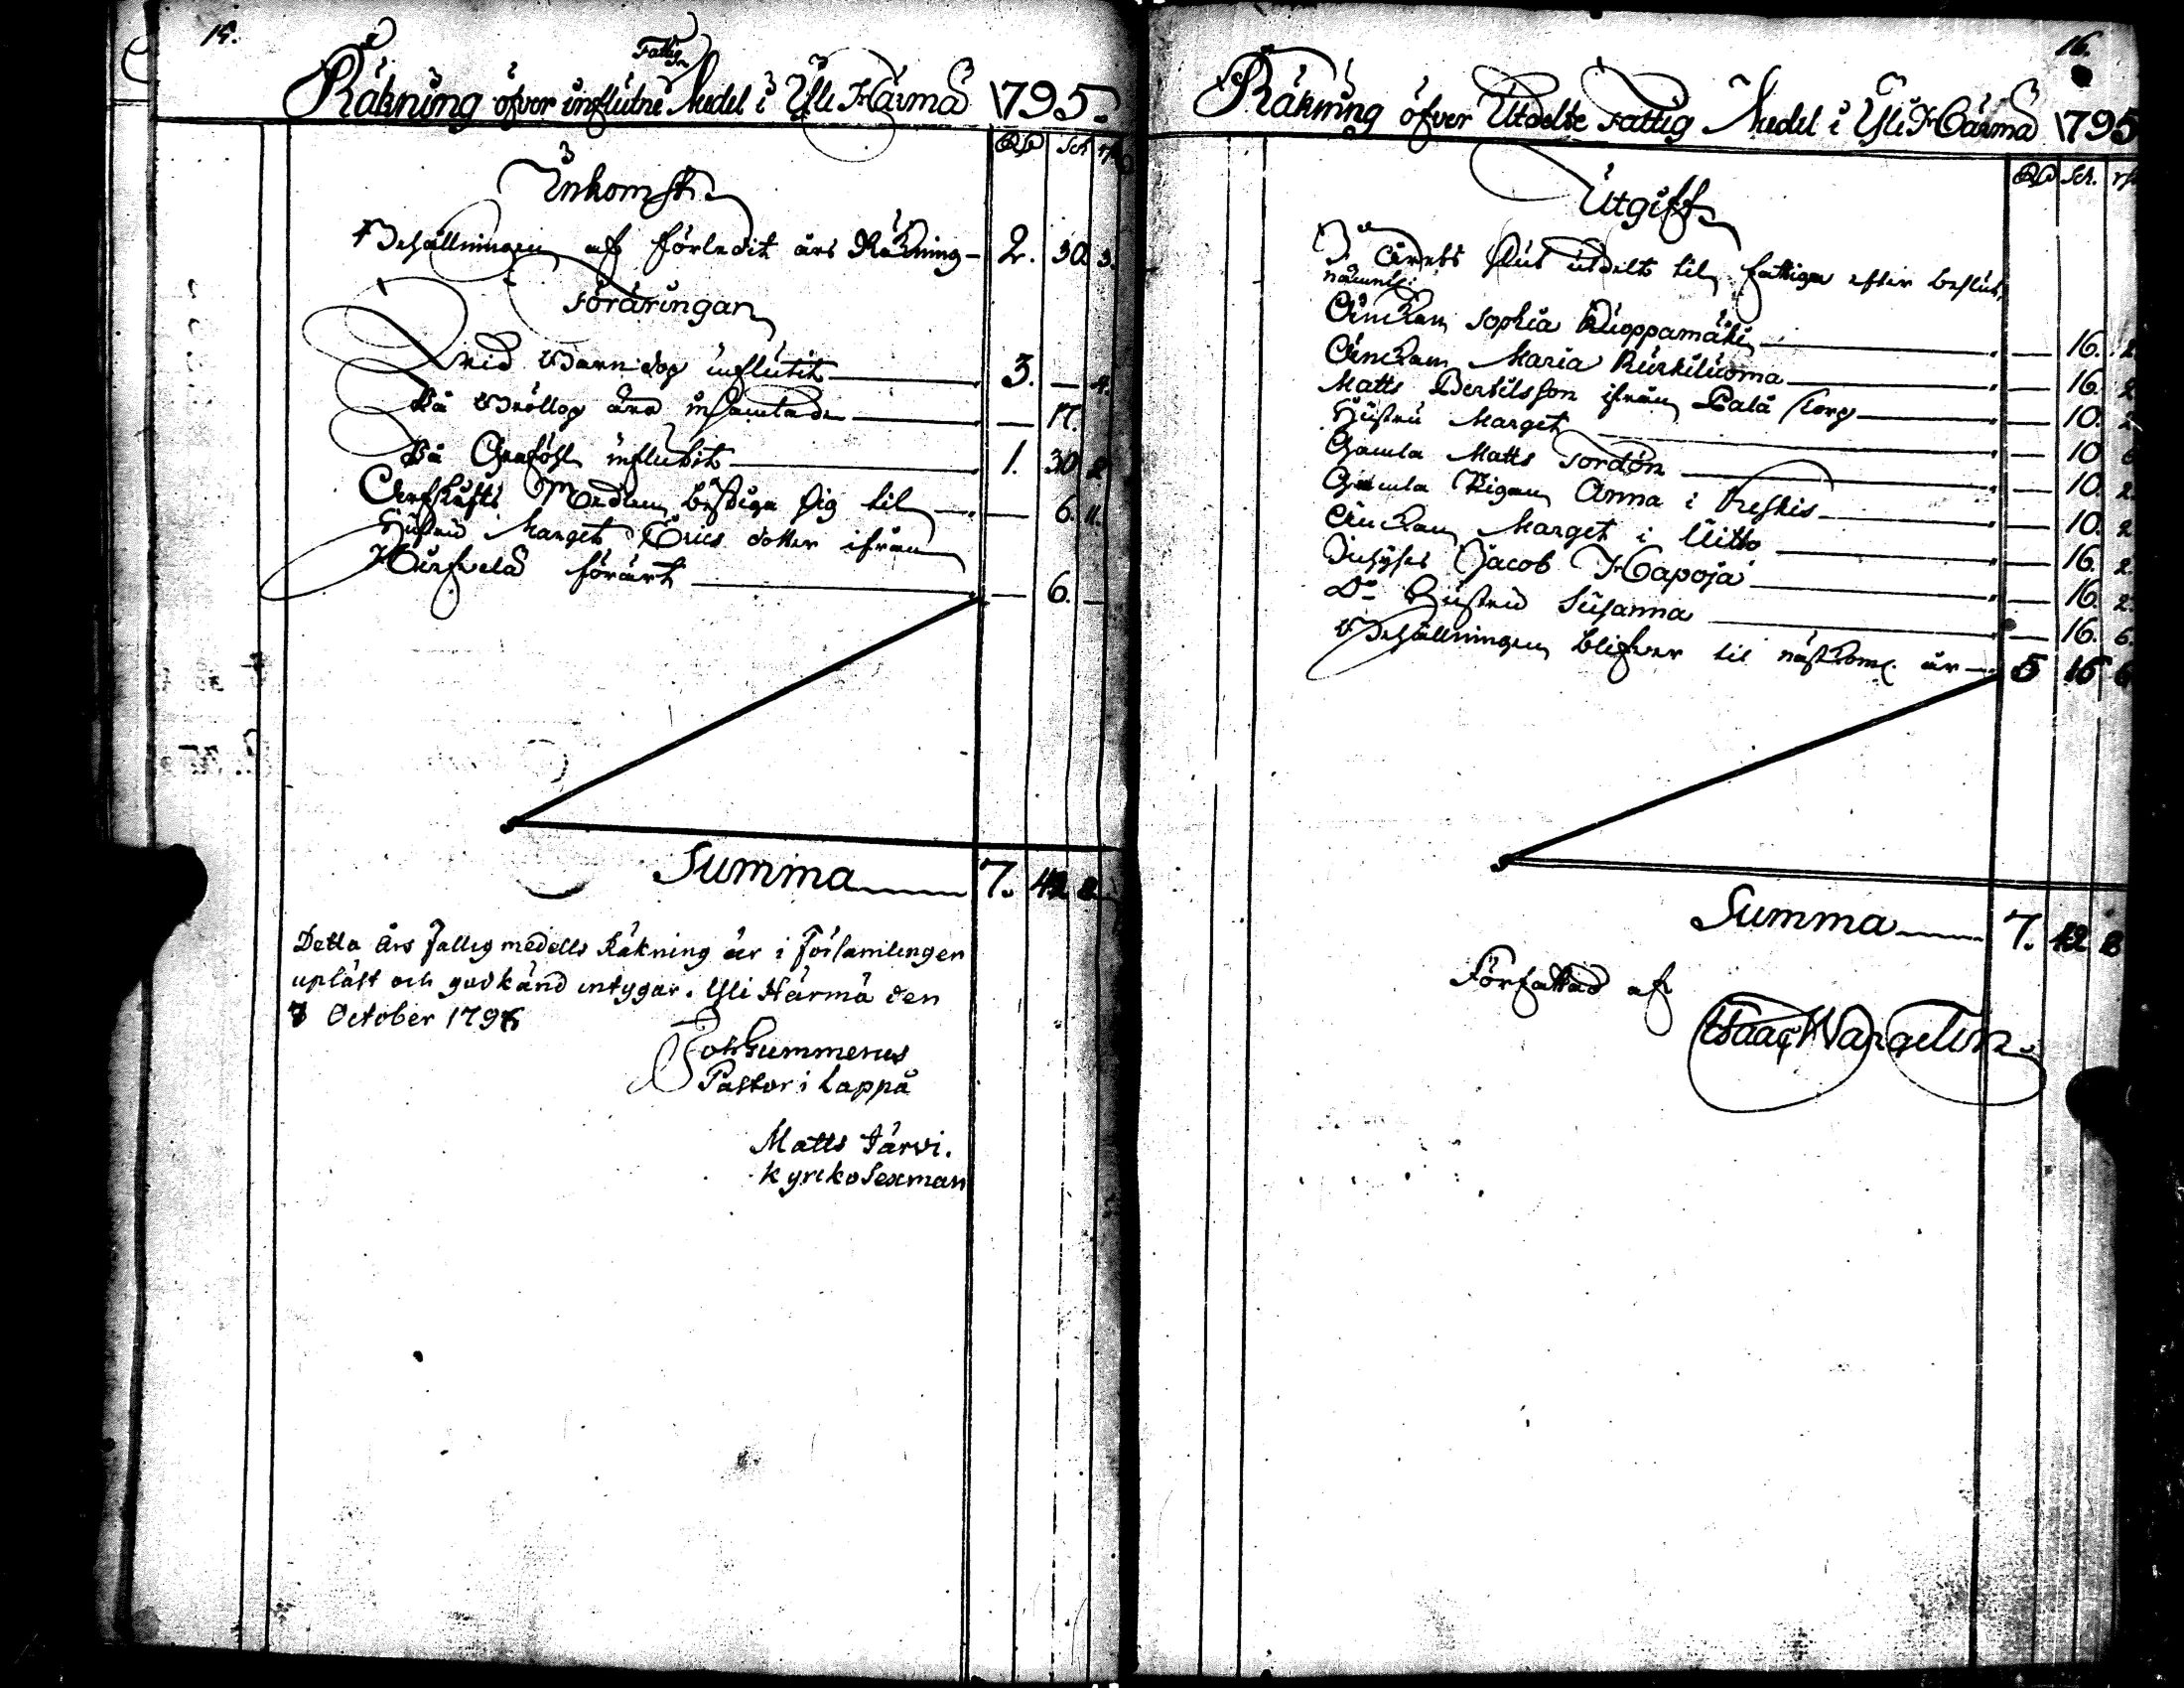 15.
Räkning öfver influtne Fattig Medel i Ylli Härmä 1795.
RD Sch rst
Inkomst
Behållningen af förledit års Räkning - 2. 30. 3.
Föräringar
Vid Barndop influtit 3. — 4.
På Bröllop äro insamlade — 17.
På Graföhl influtit 1. 30 2
Medlen bestiga sig til — 6. 11.
Hustru Marget dotter ifrån
förärt — 6. —
Summa 7. 42 8
Detta års Fattigmedells Räkning är i Församlingen
upläst och godkänd intygar. Ylli Härmä den
October 1795
Joh Gummerus
Pastor i Lappå
Matts Järvi.
kyrko Sexman
16.
Räkning öfver Utdelte Fattig Medel i Yli Härmä 1795
RD Sch. rst
Utgift
I årets slut utdelt til fattiga efter beslut,
nämnl:
Änckan Sophia Kuoppamäki — 16. 2
Änckan Maria Kurkiluoma — 16. 2
Matts Bertilsson ifrån Pala Torp — 10. 2
Hustru Marget — 10 6
Gamla Matts Tordön — 10. 2
Gamla Pigan Anna i — 10. 2
Änckan Marget i Uitto — 16. 2
Inhyses Jacob Hapoja — 16. 2.
Do Hustru Susanna — 16. 6.
Behållningen blifver til nästkom. år 5 16 6
Summa 7. 42 8
Författad af
Isaac Wargelin.